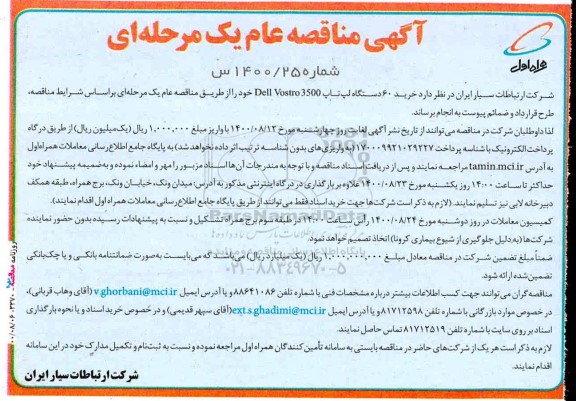 آگهی مناقصه عام یک مرحله‌ای
همراه اول
شماره ۱۴۰۰/۲۵ س
شرکت ارتباطات سیار ایران در نظر دارد خرید ۶۰ دستگاه لپ تاپ Dell Vostro 3500 خود را از طریق مناقصه عام یک مرحله‌ای براساس شرایط مناقصه،
طرح قرارداد و ضمائم پیوست به انجام برساند.
لذا داوطلبان شرکت در مناقصه می‌توانند از تاریخ نشر آگهی لغایت روز چهارشنبه مورخ ۱۴۰۰/۰۸/۱۲ با واریز مبلغ ۱,۰۰۰,۰۰۰ ریال (یک میلیون ریال) از طریق درگاه
پرداخت الکترونیک با شناسه پرداخت (به واریزی‌های بدون شناسه ترتیب اثر داده نخواهد شد) به پایگاه جامع اطلاع رسانی معاملات همراه اول
به آدرس tamin.mci.ir مراجعه نمایند و پس از دریافت اسناد مناقصه و با توجه به مندرجات آن‌ها اسناد مزبور را مهر و امضاء نموده و به ضمیمه پیشنهاد خود
حداکثر تا ساعت ۱۴:۰۰ روز یکشنبه مورخ ۱۴۰۰/۰۸/۲۳ علاوه بر بارگذاری در درگاه اینترنتی مذکور به آدرس: میدان ونک، خیابان ونک، برج همراه، طبقه همکف
دبیرخانه لابی نیز تسلیم نمایند. (لازم به ذکر است شرکت‌ها جهت خرید اسناد فقط می‌توانند از طریق پایگاه جامع اطلاع رسانی معاملات همراه اول اقدام نمایند).
کمیسیون معاملات در روز دوشنبه مورخ ۱۴۰۰/۰۸/۲۴ رأس ساعت ۱۴:۰۰ در طبقه سوم برج همراه تشکیل و نسبت به پیشنهادات رسیده بدون حضور نماینده
شرکت‌ها (به دلیل جلوگیری از شیوع بیماری کرونا) اتخاذ تصمیم خواهد نمود.
ضمناً مبلغ تضمین شرکت در مناقصه معادل مبلغ ۱,۰۰۰,۰۰۰,۰۰۰ ریال (یک میلیارد ریال) می‌باشد که می‌بایست به صورت ضمانتنامه بانکی و یا چک بانکی
تضمین شده ارائه شود.
۰۲۱-۸۸۳۴۹۶۷۰-۵
مناقصه گران می‌توانند جهت کسب اطلاعات بیشتر درباره مشخصات فنی با شماره تلفن ۸۸۶۴۱۰۸۶ و یا آدرس ایمیل v.ghorbani@mci.ir (آقای وهاب قربانی)،
در خصوص موارد بازرگانی با شماره تلفن ۸۱۷۱۲۵۹۸ و یا آدرس ایمیل ext.s.ghadimi@mci.ir (آقای سپهر قدیمی) و در خصوص خرید اسناد و یا نحوه بارگذاری
اسناد بر روی سایت با شماره تلفن ۸۱۷۱۲۵۱۹ تماس حاصل نمایند.
لازم به ذکر است هر یک از شرکت‌های حاضر در مناقصه بایستی به سامانه تأمین کنندگان همراه اول مراجعه نموده و نسبت به ثبت‌نام و تکمیل مدارک خود در این سامانه
اقدام نمایند.
شرکت ارتباطات سیار ایران